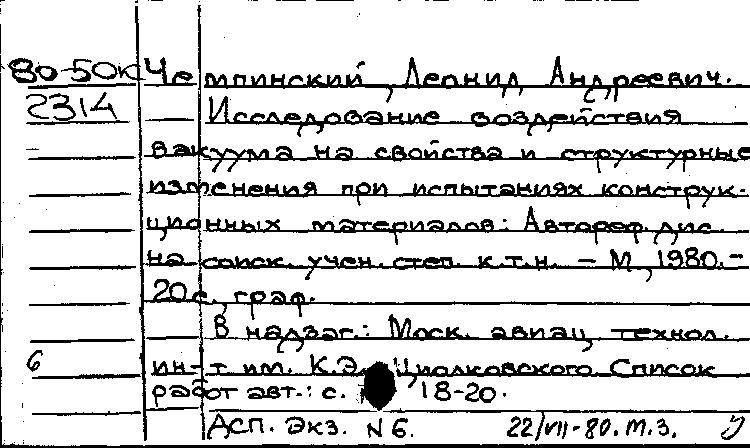 80-50к Чемпинский, Леонид Андреевич.
2314 Исследование воздействия
вакуума на свойства и структурные
изменения при испытаниях конструк-
ционных материалов: Автореф. дис.
на соиск. учен. степ. к.т.н. – М., 1980. –
20 с., граф.
В надзаг.: Моск. авиац. технол.
6 ин-т им. К.Э. Циолковского. Список
работ авт.: с. 18-20.
Асп. экз. № 6. 22/VII-80. М.З.